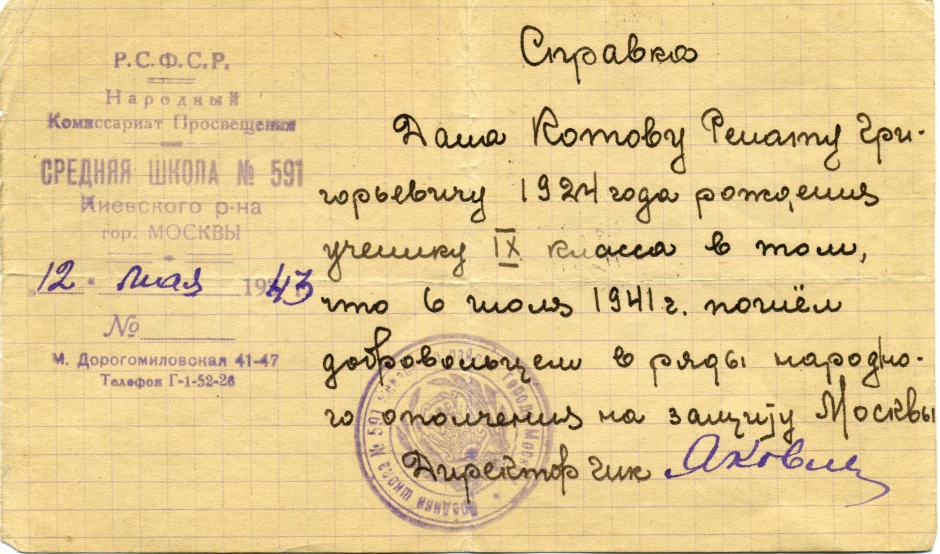 Р.С.Ф.С.Р.
Народный
Комиссариат Просвещения
СРЕДНЯЯ ШКОЛА № 591
Киевского р-на
гор. МОСКВЫ
12 мая 1943
№
М. Дорогомиловская 41-47
Телефон Г-1-52-26
Справка
Дана Котову Ренату Гри-
горьевичу 1924 года рождения
ученику IX класса в том,
что 6 июля 1941 г. пошёл
добровольцем в ряды народно-
го ополчения на защиту Москвы
Директор